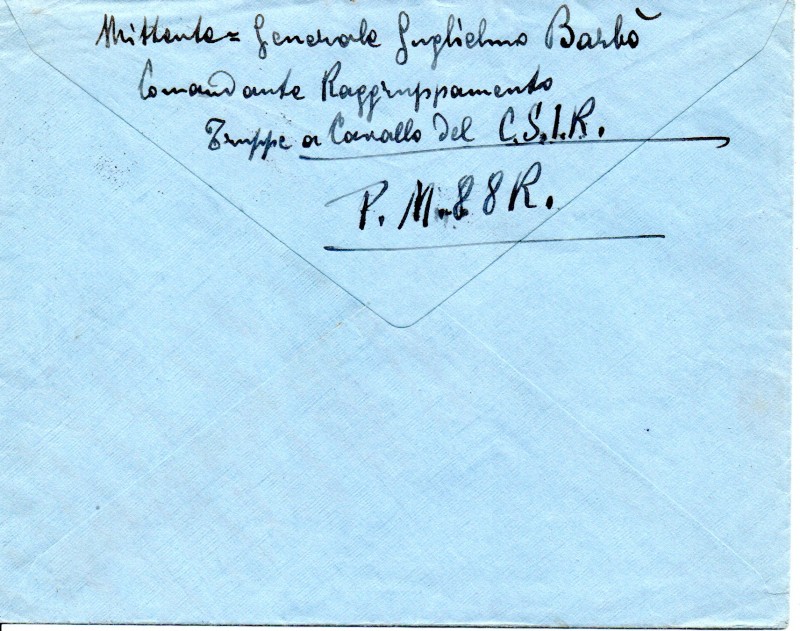 Mittente = Generale Guglielmo Barbò
Comandante Raggruppamento
Truppe a Cavallo del C.S.I.R.
P. M. 88R.